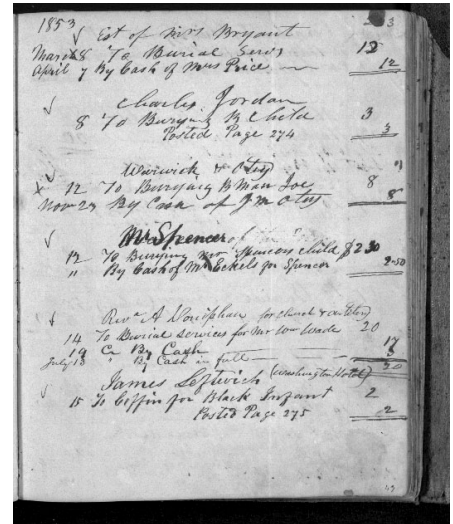 1853
Est of Mrs Bryant
March 8 To Burial Servs 12
April 7 By Cash of Mrs Price 12
Charles Jordan
8 To Burying B Child 3
Posted Page 274 3
Warwick & Otey
12 To Burying B Man Joe 8
Nov 23 By Cash of J M Otey 8
Mr Spencer
12 To Burying Spencers child $2 50
" By Cash of Mr Eckels for Spencer 2.50
Revd A Doniphan
14 To Burial services for Mr Wm Wade 20
19 Cr By Cash 17
July 18 " By Cash in full 3
20
James Leftwich (Washington Hotel)
15 To Coffin for Black Infant 2
Posted Page 275 2